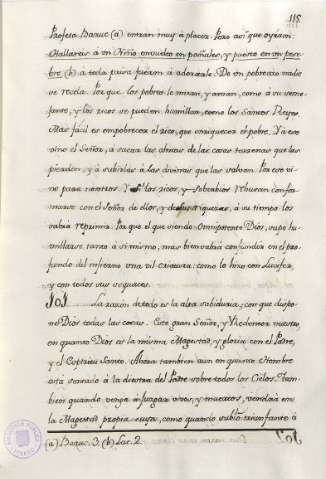 118.
Profeta Baruc (a) entran muy à placer. Pero asi que oyeron:
Hallareis à un Niño envuelto en pañales, y puesto en un pese
bre (b) a toda prisa fueron à adorarle. De un pobrecito nadie
se recela. Por que los pobres le miran, y aman, como à su seme-
jante, y los ricos se pueden humillar, como los Santos Reyes.
Mas facil es empobrecer el rico, que enriquecer el pobre. Ya se
vino el Señor, à sacar las almas de las cosas terrenas que las
pierden, y à subirlas à las divinas que las salvan. Por eso vi-
no para nosotros. Y si los ricos, y soberbios rehusan confor-
marse con el Señor de ellos, y de sus riquezas, à su tiempo los
sabrà reprimir. Por que el que siendo Omnipotente Dios, supo hu-
millarse tanto à si mismo, mas bien sabrà confundir en el pro-
fundo del infierno una vil criatura: como lo hizo con Lucifer,
y con todos sus sequaces.
101. La razon de todo es la alta sabiduria, con que dispo-
ne Dios todas las cosas. Este gran Señor, y Redentor nuestro,
en quanto Dios es la misma Magestad, y gloria con el Padre,
y el Espiritu Santo. Ahora tambien aun en quanto Hombre
està sentado à la diestra del Padre sobre todos los Cielos. Tam-
bien quando venga à Juzgar vivos, y muertos, vendrà en
la Magestad propia suya, como quando subiò triunfante à
(a) Baruc. 3. (b) Luc. 2.